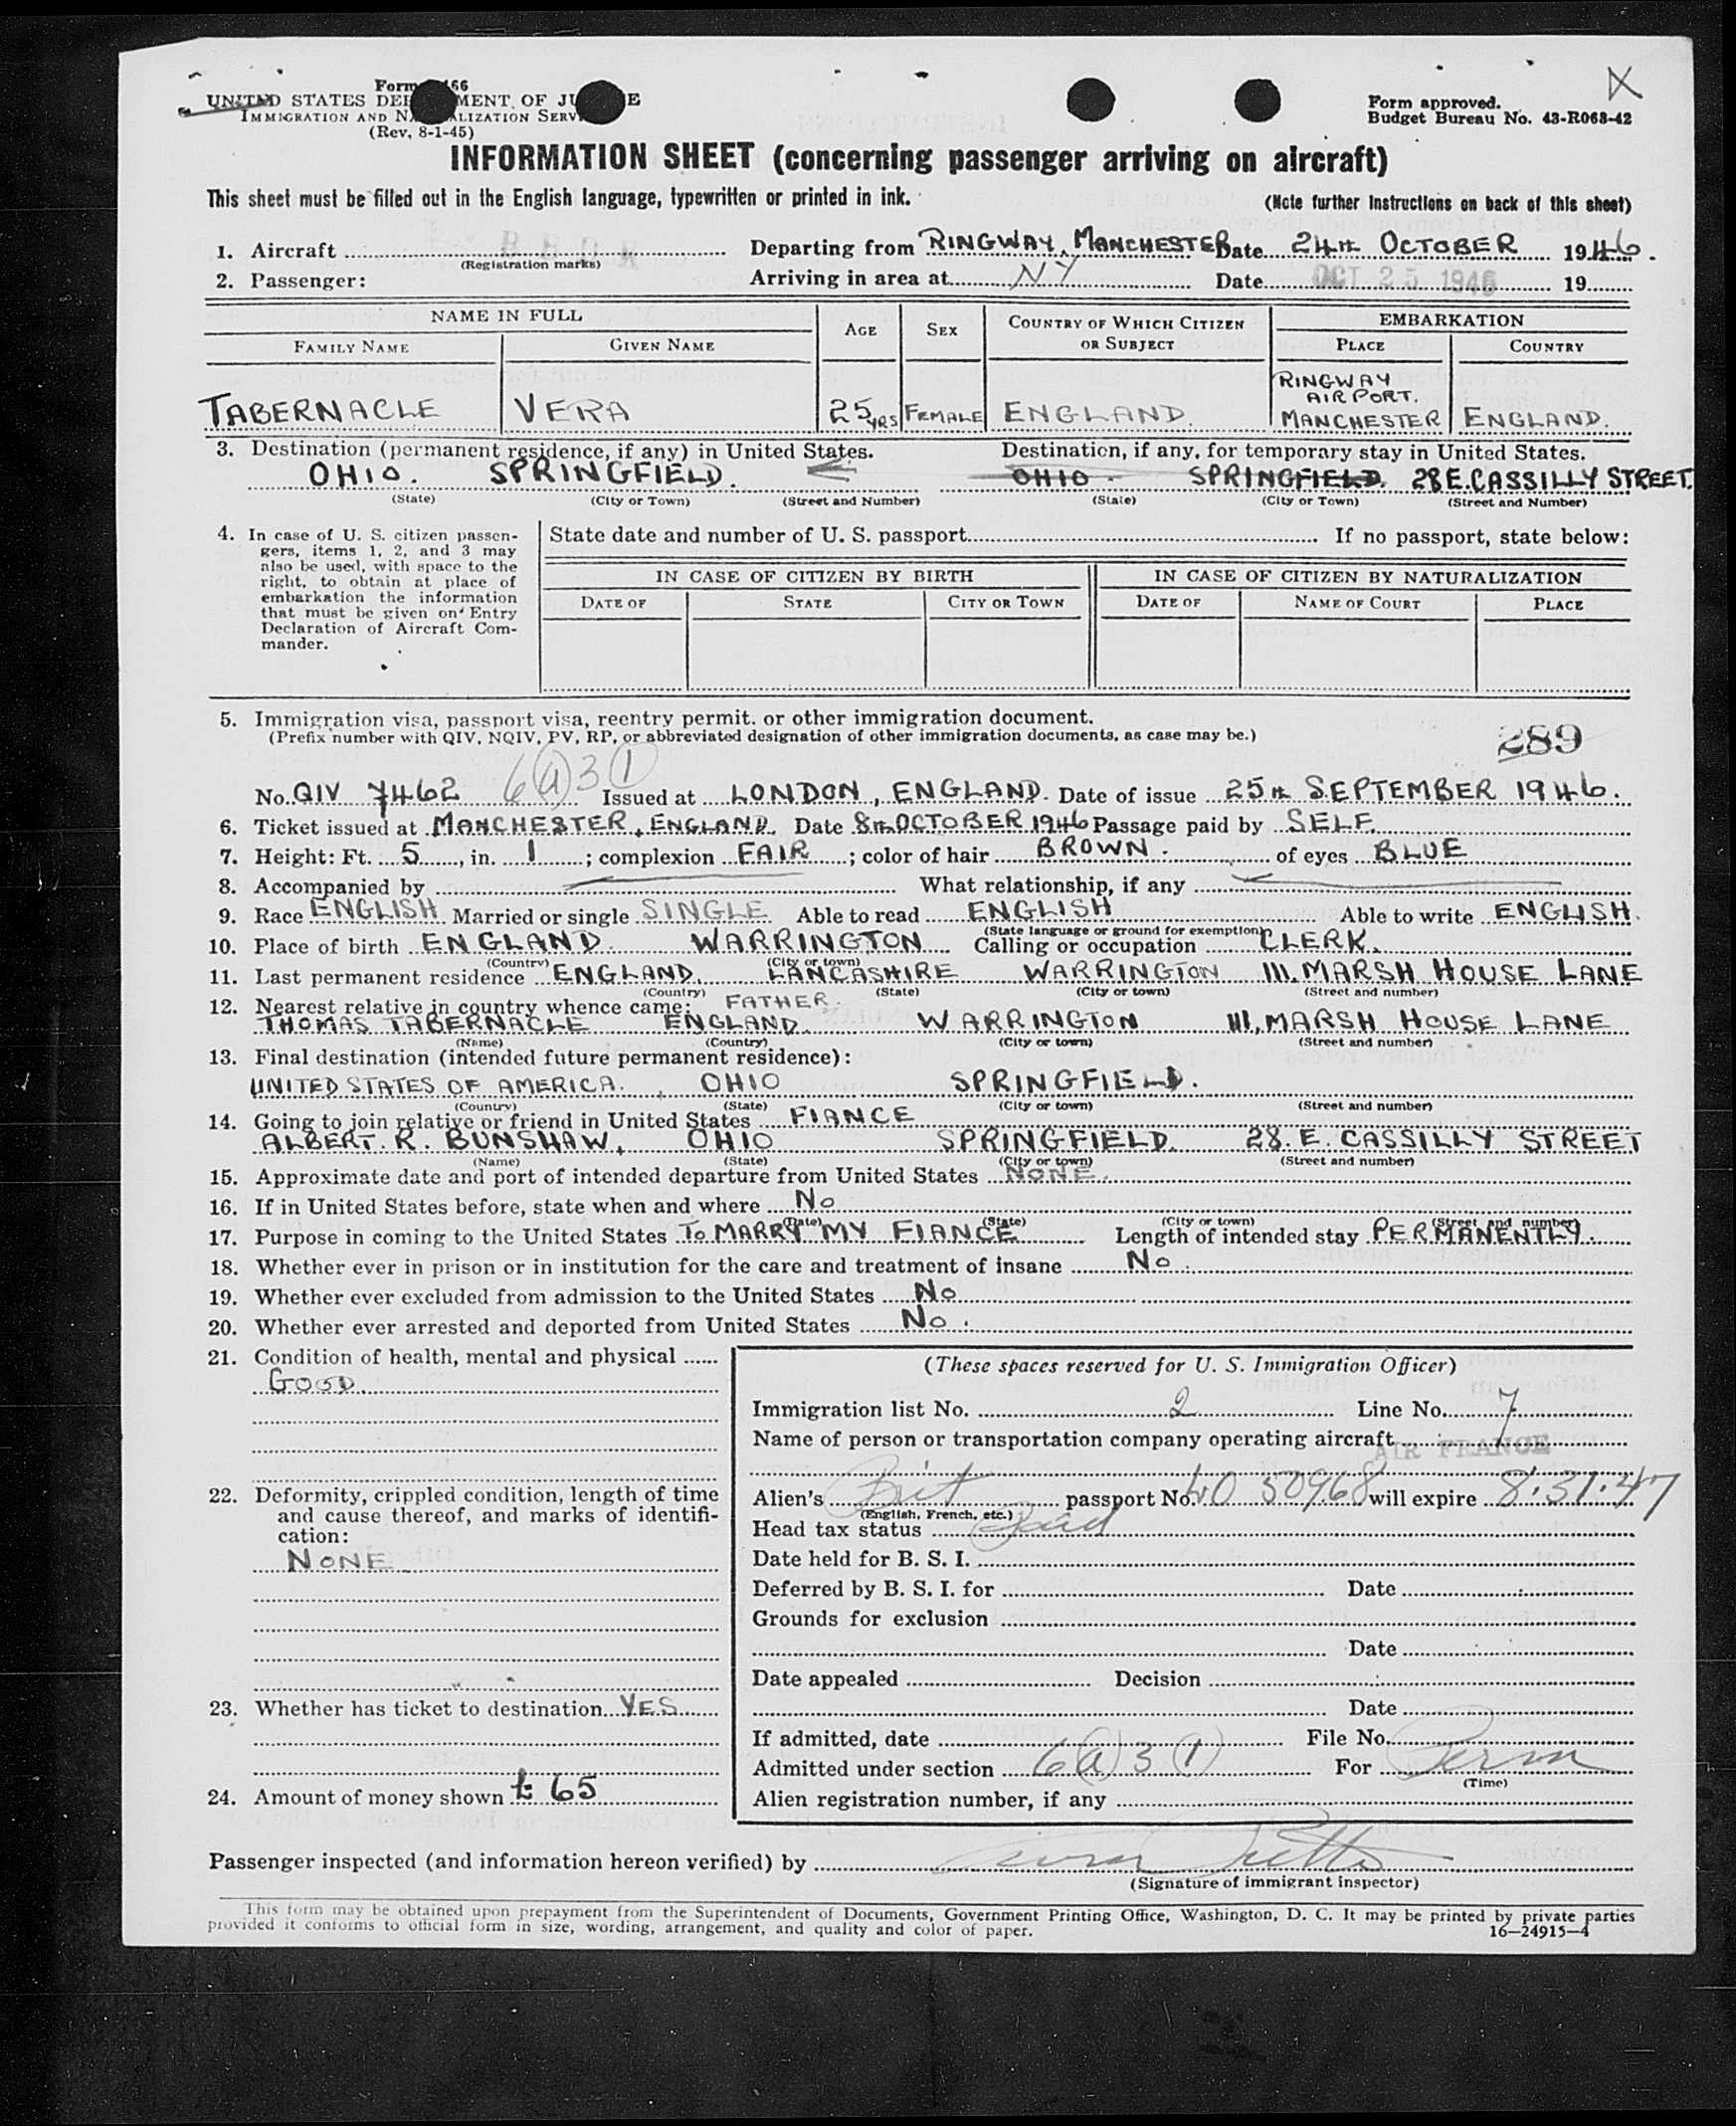 Form 66
UNITED STATES DEPARTMENT OF JUSTICE
IMMIGRATION AND NATURALIZATION SERVICE
(Rev. 8-1-45)
Form approved.
Budget Bureau No. 43-R068-42
X
INFORMATION SHEET (concerning passenger arriving on aircraft)
This sheet must be filled out in the English language, typewritten or printed in ink.
(Note further instructions on back of this sheet)
1. Aircraft Departing from RINGWAY, MANCHESTER Date 24th OCTOBER 1946.
(Registration marks)
2. Passenger: Arriving in area at NY Date OCT 25 1946 19
NAME IN FULL AGE SEX COUNTRY OF WHICH CITIZEN OR SUBJECT EMBARKATION
FAMILY NAME GIVEN NAME PLACE COUNTRY
TABERNACLE VERA 25 YRS FEMALE ENGLAND. RINGWAY AIRPORT. MANCHESTER ENGLAND.
3. Destination (permanent residence, if any) in United States. Destination, if any, for temporary stay in United States.
OHIO. SPRINGFIELD. OHIO. SPRINGFIELD. 28 E. CASSILLY STREET.
(State) (City or Town) (Street and Number) (State) (City or Town) (Street and Number)
4. In case of U. S. citizen passen-
gers, items 1, 2, and 3 may
also be used, with space to the
right, to obtain at place of
embarkation the information
that must be given on Entry
Declaration of Aircraft Com-
mander.
State date and number of U. S. passport If no passport, state below:
IN CASE OF CITIZEN BY BIRTH IN CASE OF CITIZEN BY NATURALIZATION
DATE OF STATE CITY OR TOWN DATE OF NAME OF COURT PLACE
5. Immigration visa, passport visa, reentry permit, or other immigration document.
(Prefix number with QIV, NQIV, PV, RP, or abbreviated designation of other immigration documents, as case may be.)
289
6(a)3(1)
No. QIV 7462 Issued at LONDON, ENGLAND. Date of issue 25th SEPTEMBER 1946.
6. Ticket issued at MANCHESTER, ENGLAND. Date 8th OCTOBER 1946 Passage paid by SELF.
7. Height: Ft. 5, in. 1; complexion FAIR; color of hair BROWN. of eyes BLUE
8. Accompanied by What relationship, if any
9. Race ENGLISH Married or single SINGLE Able to read ENGLISH Able to write ENGLISH.
(State language or ground for exemption)
10. Place of birth ENGLAND WARRINGTON Calling or occupation CLERK.
(Country) (City or town)
11. Last permanent residence ENGLAND, LANCASHIRE WARRINGTON 111, MARSH HOUSE LANE
(Country) (State) (City or town) (Street and number)
12. Nearest relative in country whence came: FATHER.
THOMAS TABERNACLE ENGLAND. WARRINGTON 111, MARSH HOUSE LANE
(Name) (Country) (City or town) (Street and number)
13. Final destination (intended future permanent residence):
UNITED STATES OF AMERICA. , OHIO SPRINGFIELD.
(Country) (State) (City or town) (Street and number)
14. Going to join relative or friend in United States FIANCE
ALBERT. R. BUNSHAW, OHIO SPRINGFIELD. 28. E. CASSILLY STREET
(Name) (State) (City or town) (Street and number)
15. Approximate date and port of intended departure from United States NONE.
16. If in United States before, state when and where No
(Date) (State) (City or town) (Street and number)
17. Purpose in coming to the United States To MARRY MY FIANCE Length of intended stay PERMANENTLY.
18. Whether ever in prison or in institution for the care and treatment of insane No.
19. Whether ever excluded from admission to the United States No
20. Whether ever arrested and deported from United States No.
21. Condition of health, mental and physical
GOOD.
22. Deformity, crippled condition, length of time
and cause thereof, and marks of identifi-
cation:
NONE
23. Whether has ticket to destination YES
24. Amount of money shown £ 65
(These spaces reserved for U. S. Immigration Officer)
Immigration list No. 2 Line No. 7
Name of person or transportation company operating aircraft
AIR FRANCE
Alien's Brit passport No. LO 50968 will expire 8-31-47
(English, French, etc.)
Head tax status Paid
Date held for B. S. I.
Deferred by B. S. I. for Date
Grounds for exclusion
Date
Date appealed Decision
Date
If admitted, date File No.
Admitted under section 6(a)3(1) For Perm
(Time)
Alien registration number, if any
Passenger inspected (and information hereon verified) by
(Signature of immigrant inspector)
This form may be obtained upon prepayment from the Superintendent of Documents, Government Printing Office, Washington, D. C. It may be printed by private parties
provided it conforms to official form in size, wording, arrangement, and quality and color of paper. 16—24915-4